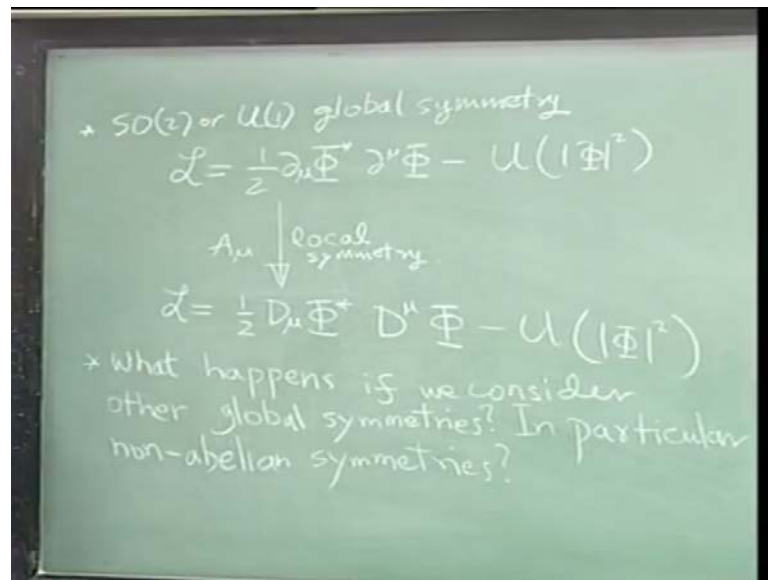 * SO(2) or U(1) global symmetry
ℒ = 1/2 ∂_μ Φ* ∂^μ Φ − U(|Φ|²)
A_μ ↓ local
symmetry.
ℒ = 1/2 D_μ Φ* D^μ Φ − U(|Φ|²)
* What happens if we consider
other global symmetries? In particular
non-abelian symmetries?